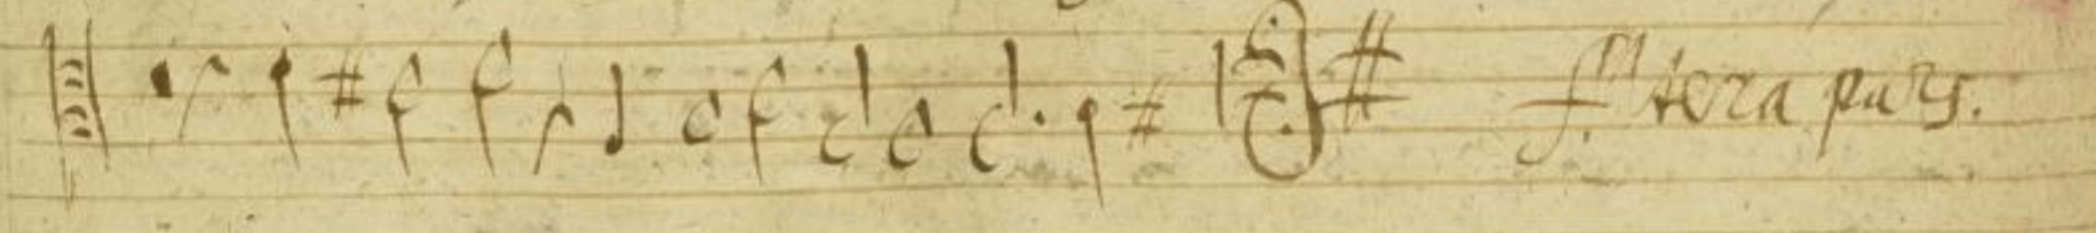 tera pars.